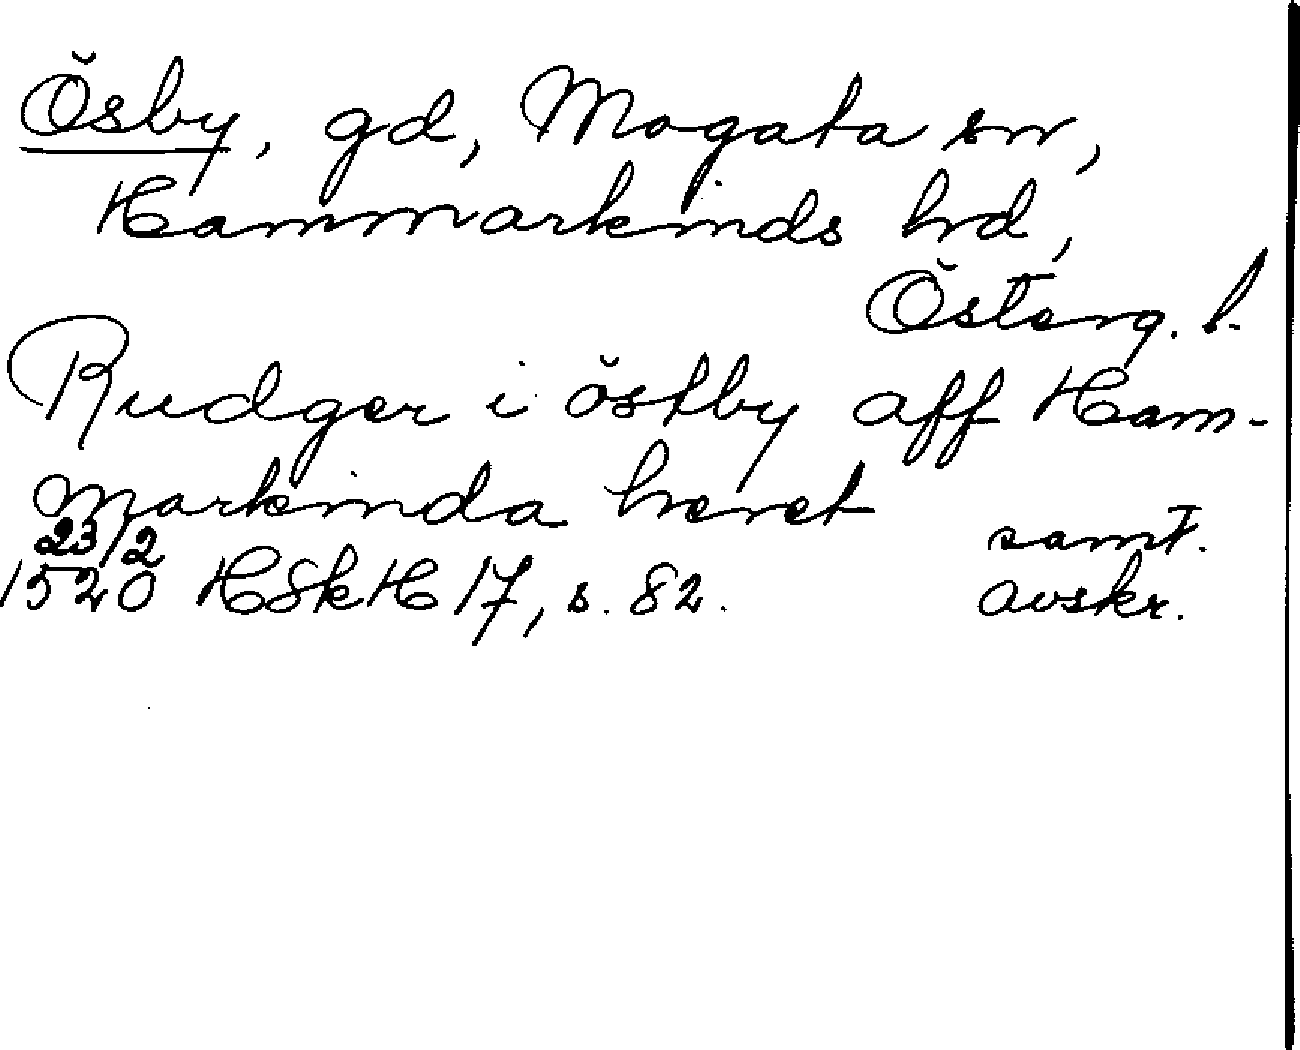 Ösby, gd, Mogata sn,
Hammarkinds hd,
Österg. l.
Rudger i östby aff Ham-
markinda heret
23/2 samt.
1520 HSkH 17, s. 82. avskr.